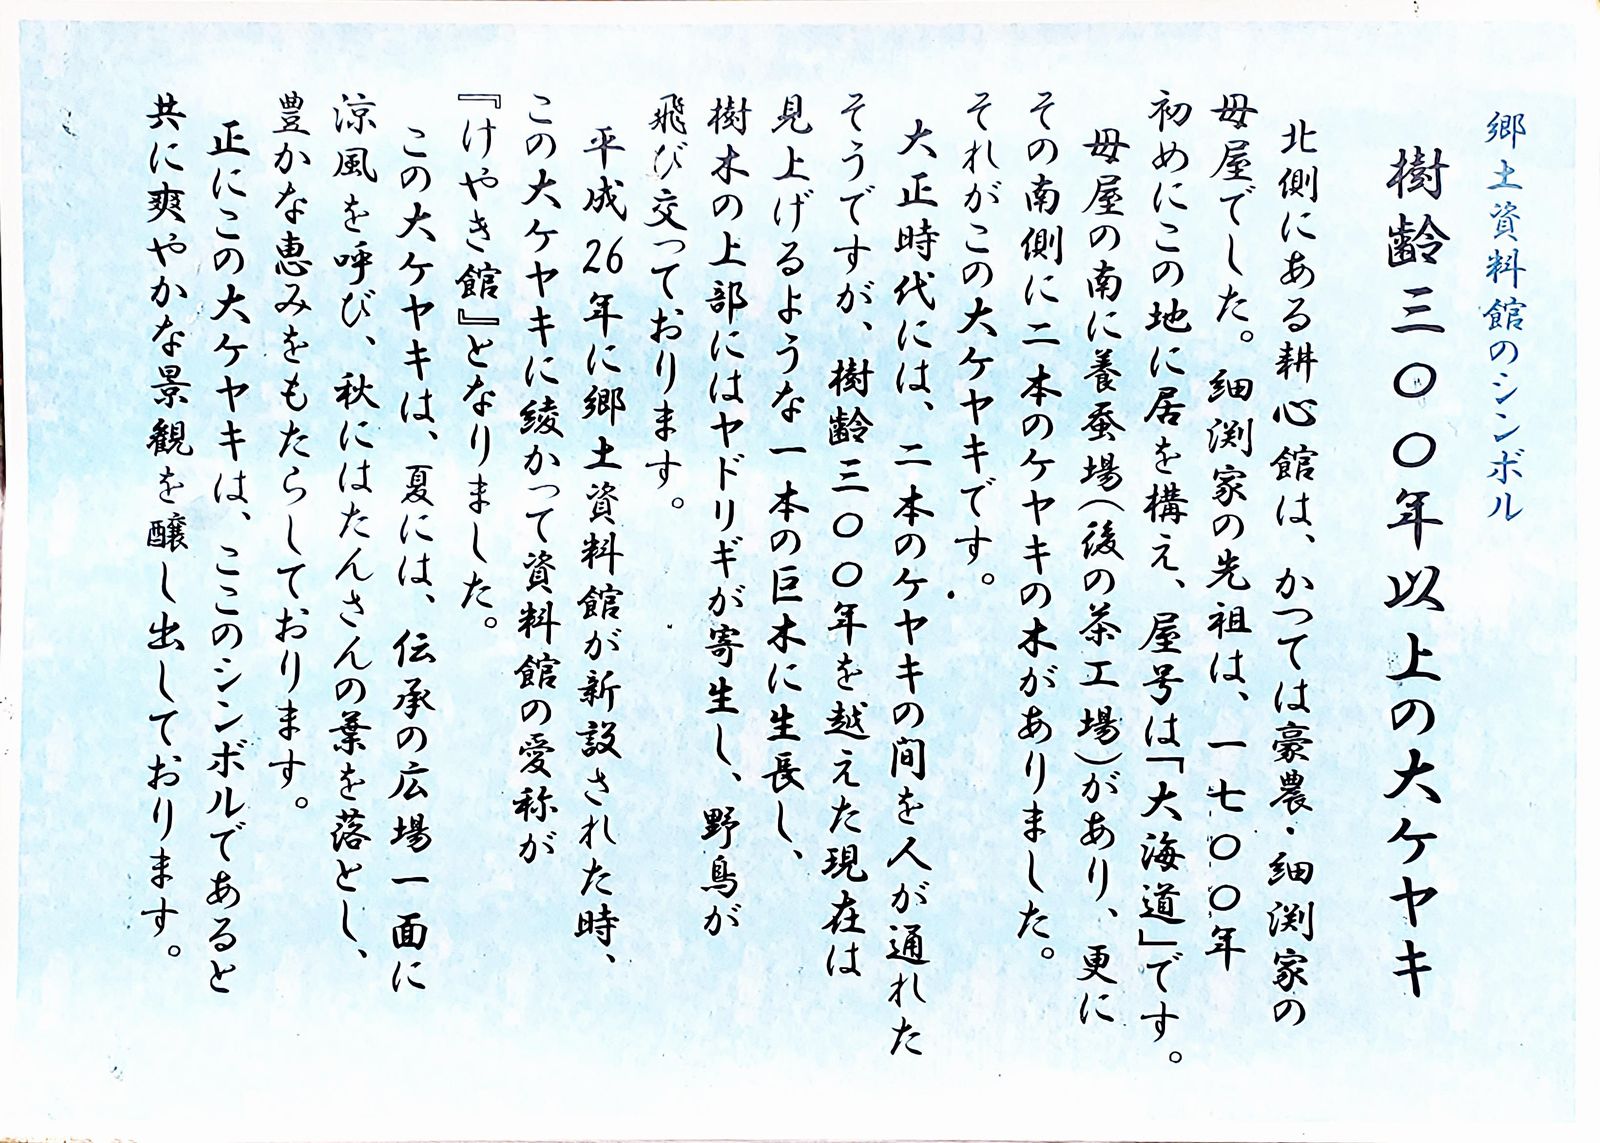 郷土資料館のシンボル
樹齢三〇〇年以上の大ケヤキ
北側にある耕心館は、かつては豪農・細渕家の
母屋でした。細渕家の先祖は、一七〇〇年
初めにこの地に居を構え、屋号は「大海道」です。
母屋の南に養蚕場(後の茶工場)があり、更に
その南側に二本のケヤキの木がありました。
それがこの大ケヤキです。
大正時代には、二本のケヤキの間を人が通れた
そうですが、樹齢三〇〇年を越えた現在は
見上げるような一本の巨木に生長し、
樹木の上部にはヤドリギが寄生し、野鳥が
飛び交っております。
平成26年に郷土資料館が新設された時、
この大ケヤキに綾かって資料館の愛称が
『けやき館』となりました。
この大ケヤキは、夏には、伝承の広場一面に
涼風を呼び、秋にはたんさんの葉を落とし、
豊かな恵みをもたらしております。
正にこの大ケヤキは、ここのシンボルであると
共に爽やかな景観を醸し出しております。